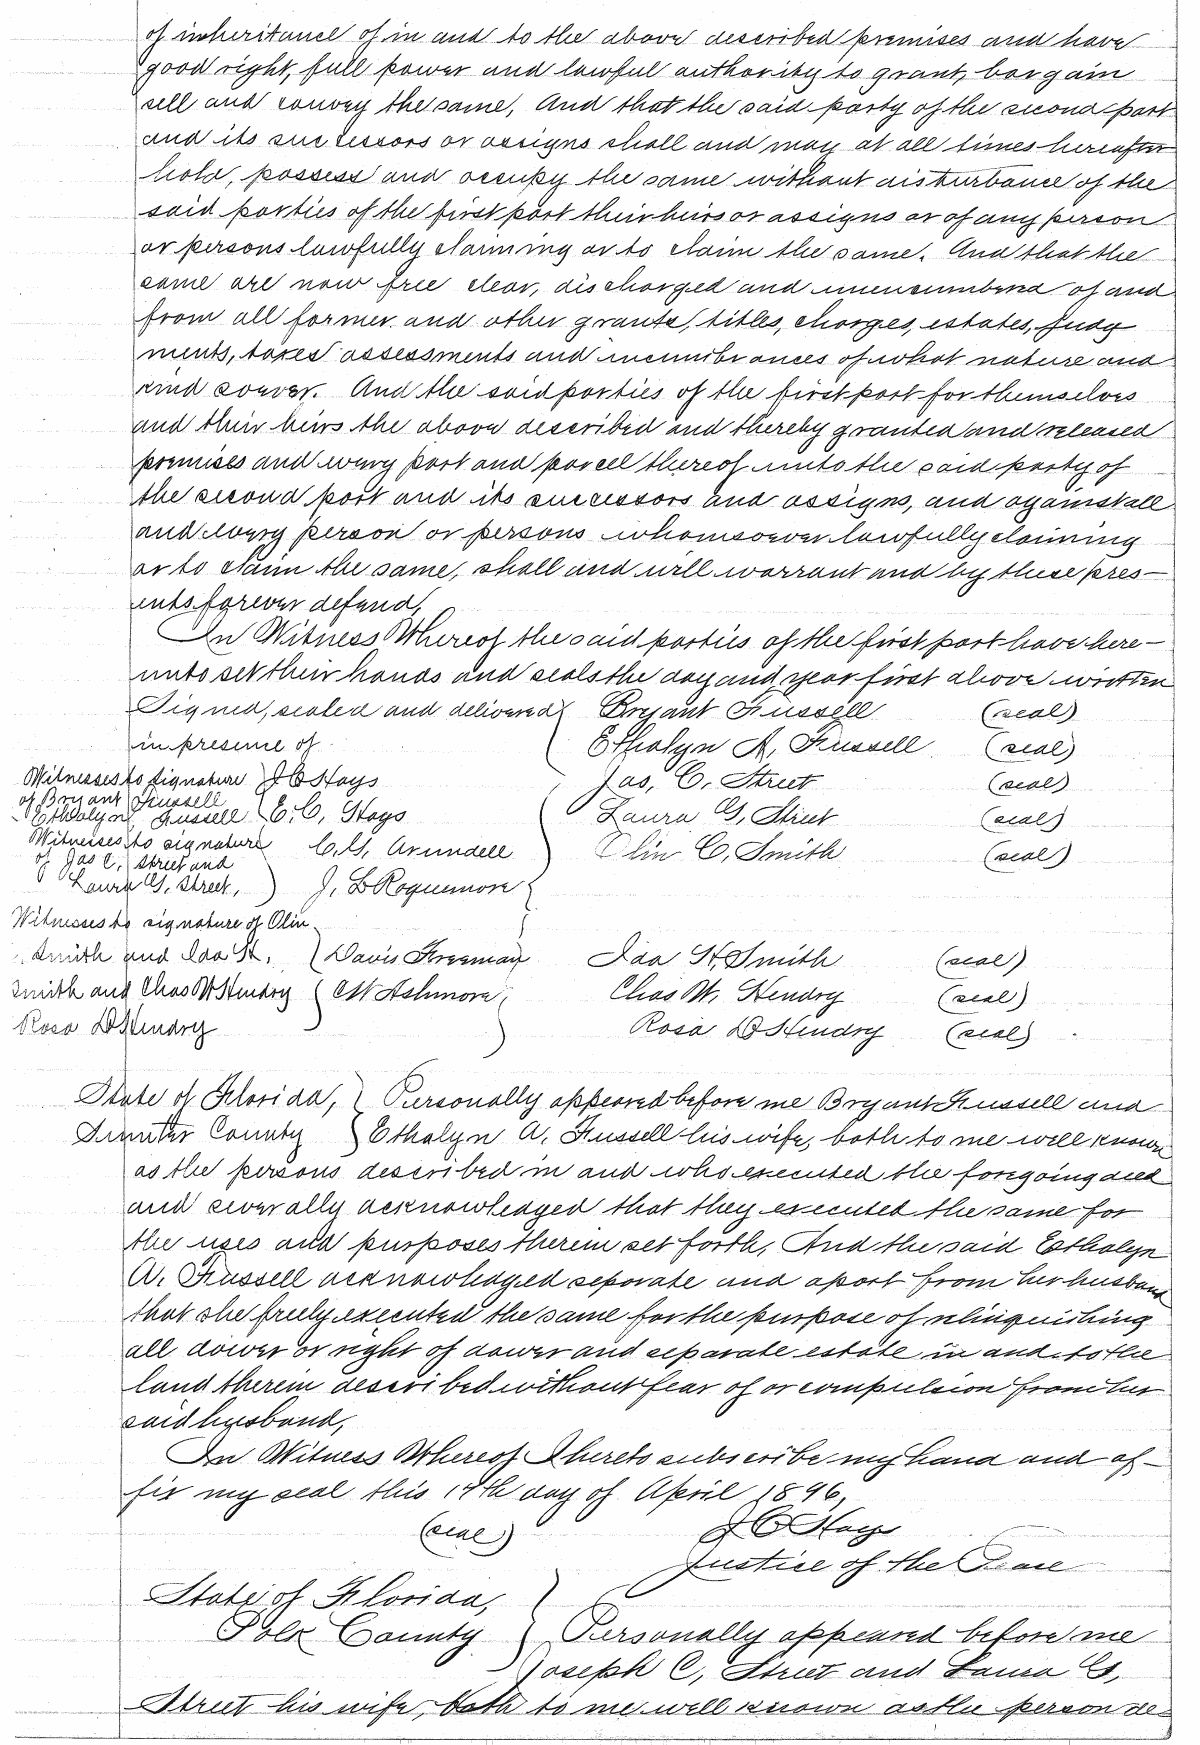 of inheritance of in and to the above described premises and have
good right, full power and lawful authority to grant, bargain
sell and convey the same, And that the said party of the second part
and its successors or assigns shall and may at all times hereafter
hold, possess and occupy the same without disturbance of the
said parties of the first part their heirs or assigns or of any person
or persons lawfully claiming or to claim the same. And that the
same are now free clear, discharged and unencumbered of and
from all former and other grants, titles, charges, estates, Judg
ments, taxes assessments and incumbrances of what nature and
kind soever. And the said parties of the first part for themselves
and their heirs the above described and thereby granted and released
premises and every part and parcell thereof unto the said party of
the second part and its successors and assigns, and against all
and every person or persons whomsoever lawfully claiming
or to claim the same, shall and will warrant and by these pres-
ents forever defend,
In Witness Whereof the said parties of the first part have here-
unto set their hands and seals the day and year first above written
Signed, sealed and delivered Bryant Fussell (seal)
in presence of Ethalyn A, Fussell (seal)
Witnesses to signature J C Hays Jas, C. Street (seal)
of Bryant Fussell
Ethalyn Fussell E. C, Hays Laura G, Street (seal)
Witnesses to signature C. G, Arundell Olin C, Smith (seal)
of Jas C, Street and
Laura G, Street, J, L Roquemore
Witnesses to signature of Olin
Smith and Ida H. Davis Freeman Ida H, Smith (seal)
Smith and Chas W Hendry C W Ashmore, Chas W, Hendry (seal)
Rosa D Hendry Rosa D Hendry (seal)
State of Florida, Personally appeared before me Bryant Fussell and
Sumter County Ethalyn A, Fussell his wife, both to me well known
as the persons described in and who executed the foregoing deed
and severally acknowledged that they executed the same for
the uses and purposes therein set forth, And the said Ethalyn
A. Fussell acknowledged separate and apart from her husband
that she freely executed the same for the purpose of relinquishing
all dower or right of dower and separate estate in and to the
land therein described without fear of or compulsion from her
said husband,
In Witness Whereof I hereto subscribe my hand and af-
fix my seal this day of April 1896,
(seal) J C Hays
Justice of the Peace
State of Florida,
Polk County Personally appeared before me
Joseph C, Street and Laura G,
Street his wife, both to me well known as the person de-